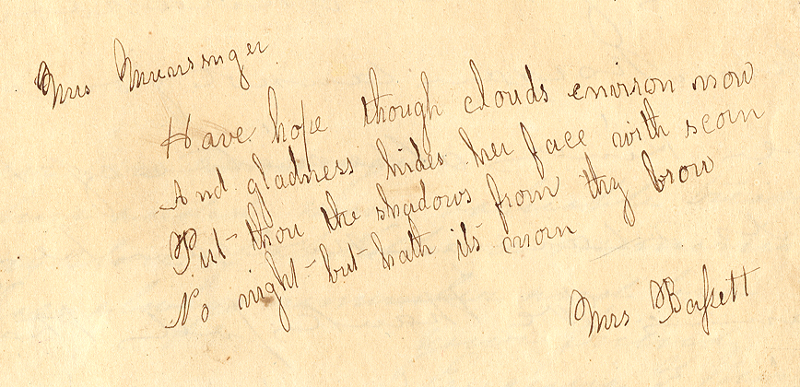 Mrs Munsinger
Have hope though clouds environ now
And gladness hides her face with scorn
Put thou the shadows from thy brow
No night but hath its morn
Mrs Bassett